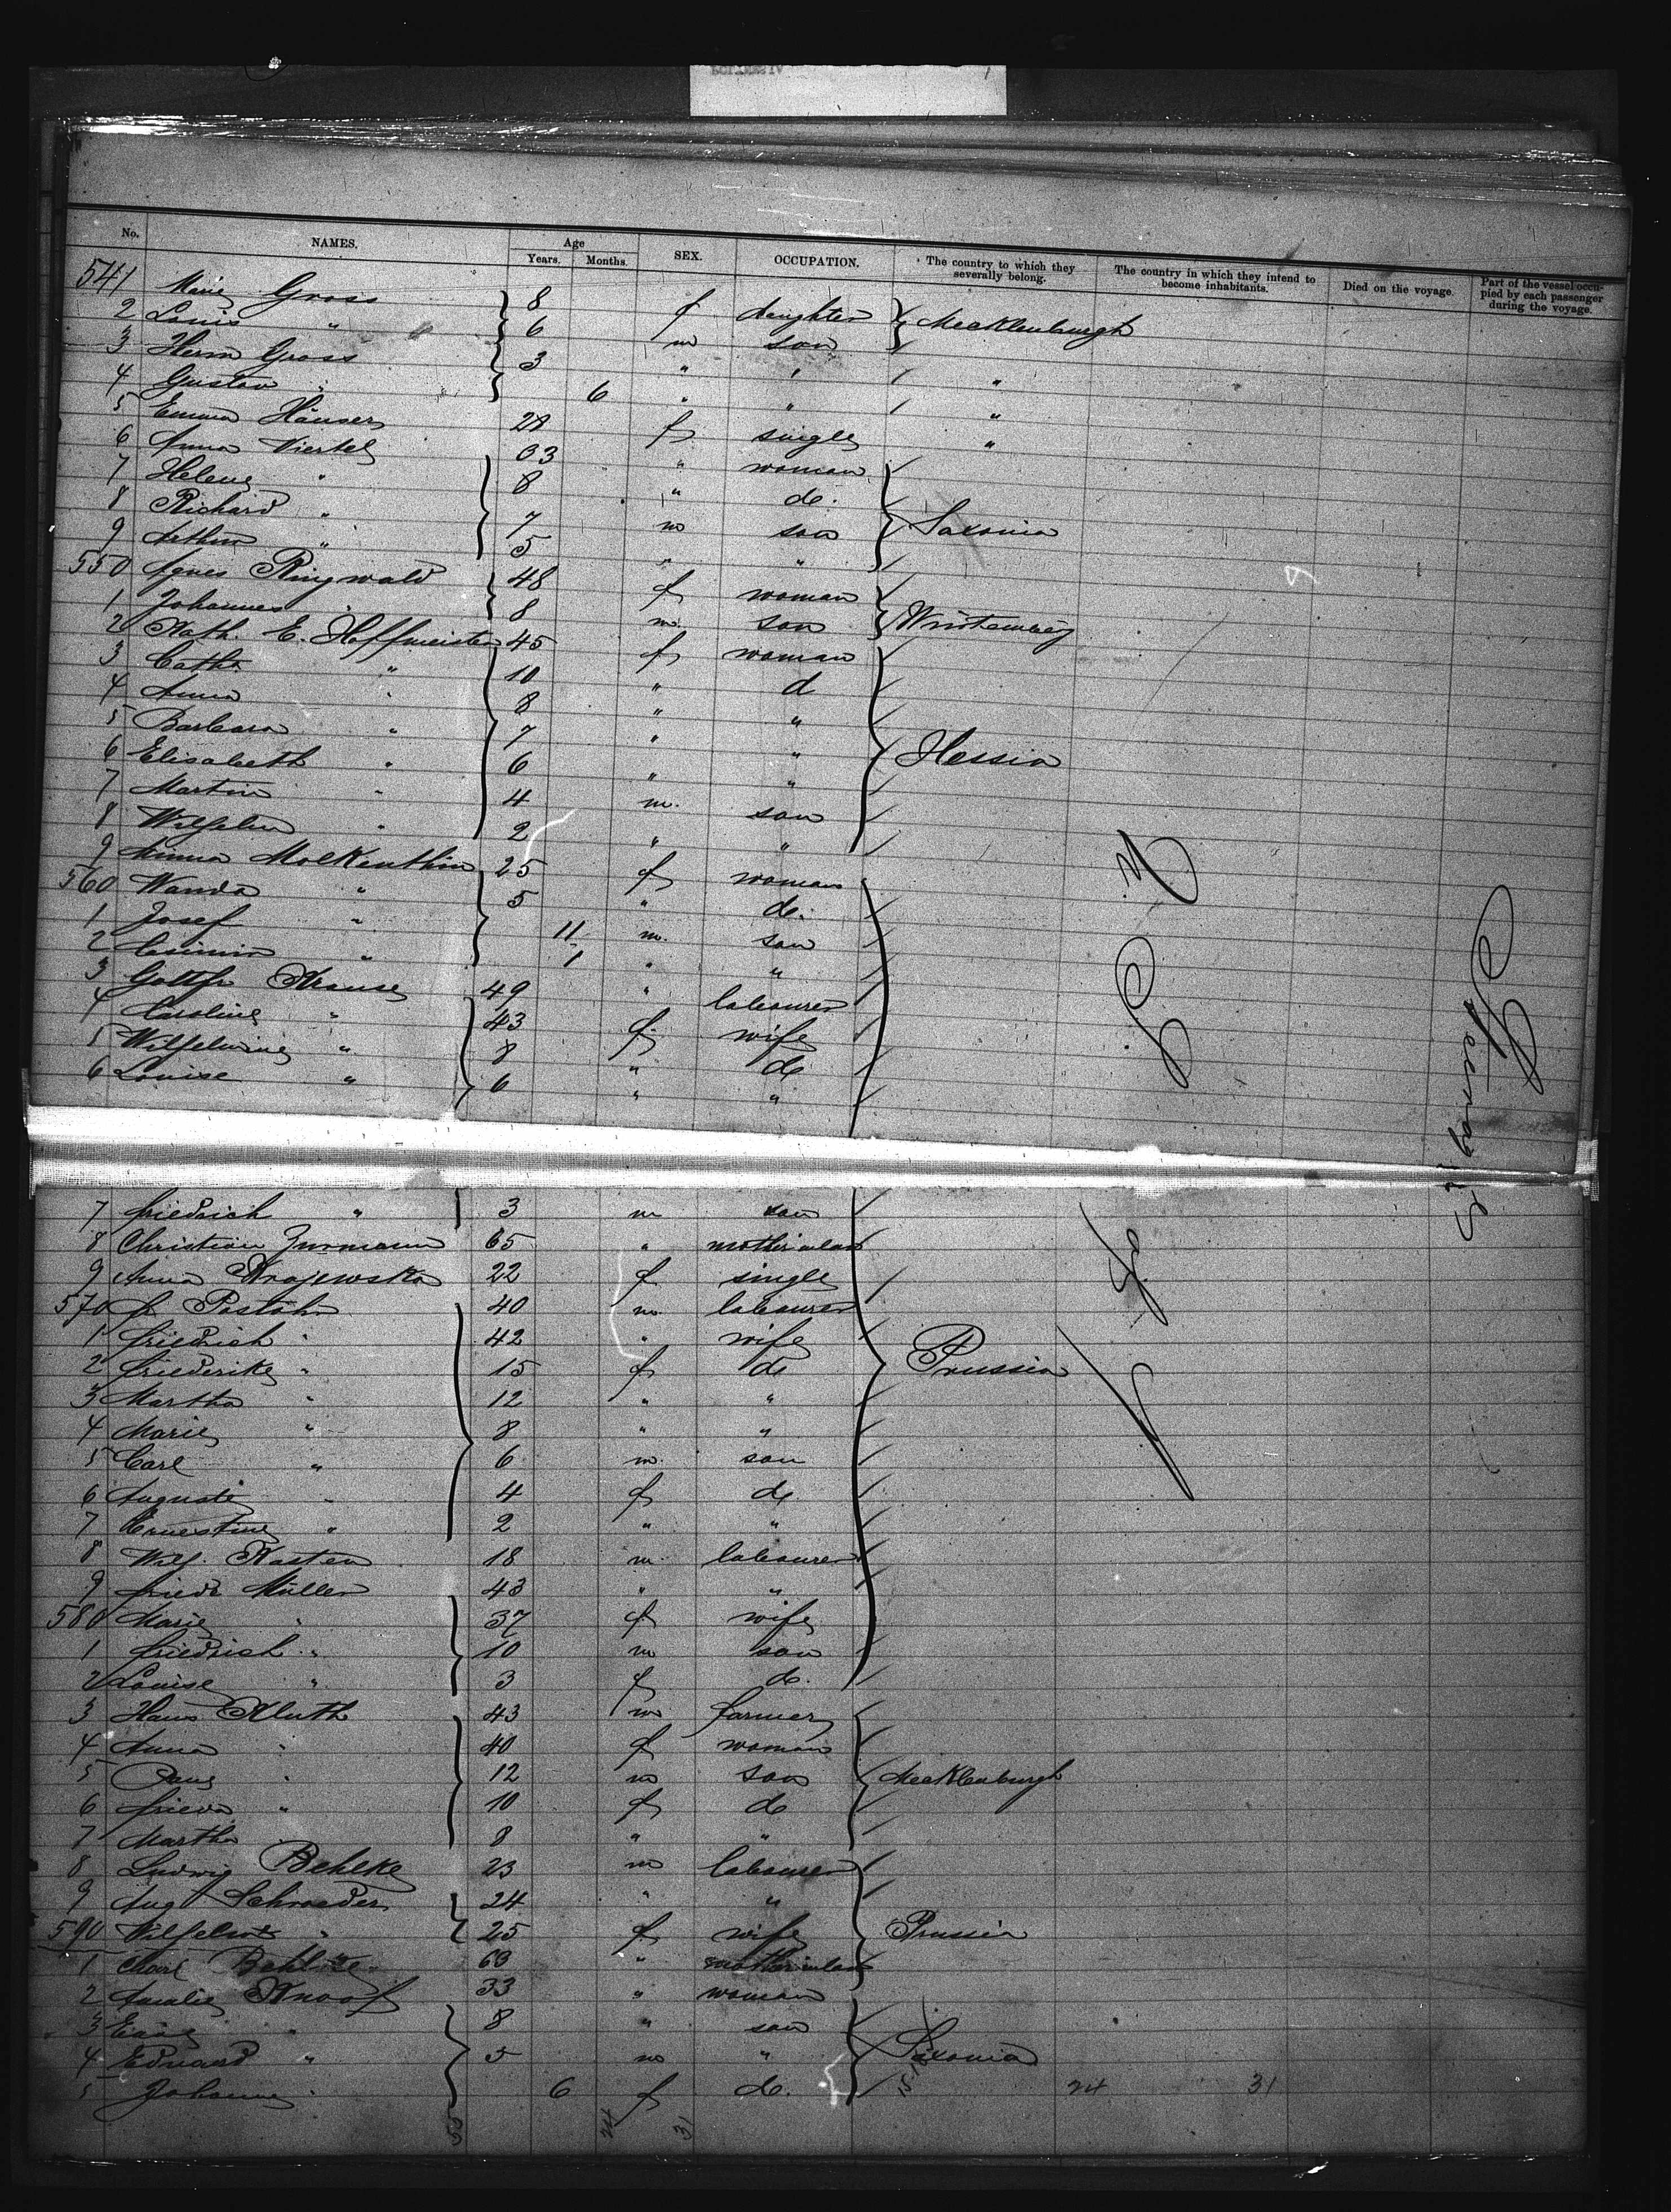 No. NAMES. Age Years. Months. SEX. OCCUPATION. The country to which they severally belong. The country in which they intend to become inhabitants. Died on the voyage. Part of the vessel occupied by each passenger during the voyage.
541 Marie Gross 8 f daughter Mecklenburgh
2 Louis " 6 m son
3 Herm Gross 3 " " "
4 Gustav " 6 " " "
5 Emma Häuser 28 f single "
6 Anna Viertel 33 " woman
7 Helene " 8 " do.
8 Richard " 7 m son Saxonia
9 Arthur " 5 " "
550 Agnes Ringwald 48 f woman
1 Johannes " 8 m. son Würtemberg
2 Kath. E. Hoffmeister 45 f woman
3 Cath. " 10 " d
4 Anna " 8 " "
5 Barbara " 7 " "
6 Elisabeth " 6 " " Hessia
7 Martin " 4 m. son
8 Wilhelm " 2 " "
9 Anna Molkenthin 25 f woman
560 Wanda " 5 " do.
1 Josef " 11 m. son
2 Casimir " 1 " "
3 Gottfr Krause 49 " labourer
4 Caroline " 43 f wife
5 Wilhelmine " 8 " do
6 Louise " 6 " "
U. S. of
Steerage
7 Friedrich " 3 m son
8 Christian 65 " mother in law
9 Anna Krajewska 22 f single
570 Fr 40 m. labourer
1 Friedrich " 42 " wife
2 Friederike " 15 f do Prussia
3 Martha " 12 " "
4 Marie " 8 " "
5 Carl " 6 m. son
6 Auguste " 4 f do
7 Ernestine " 2 " "
8 Wilh. Kasten 18 m. labourer
9 Friedr Müller 43 " "
580 Marie " 37 f wife
1 Friedrich " 10 m son
2 Louise " 3 f do.
3 Hans Kluth 43 m farmer
4 Anna " 40 f woman
5 Paul " 12 m son Mecklenburgh
6 Frieda " 10 f do
7 Martha " 8 " "
8 Ludwig Behlke 23 m labourer
9 Aug Schroeder 24 " "
590 " 25 f wife Prussia
1 Charl Behlke 63 " mother in law
2 Amalie Knoof 33 " woman
3 " 8 " son
4 Eduard " 5 m " Saxonia
5 Johanne " 6 f do.
24 31
55 24 31